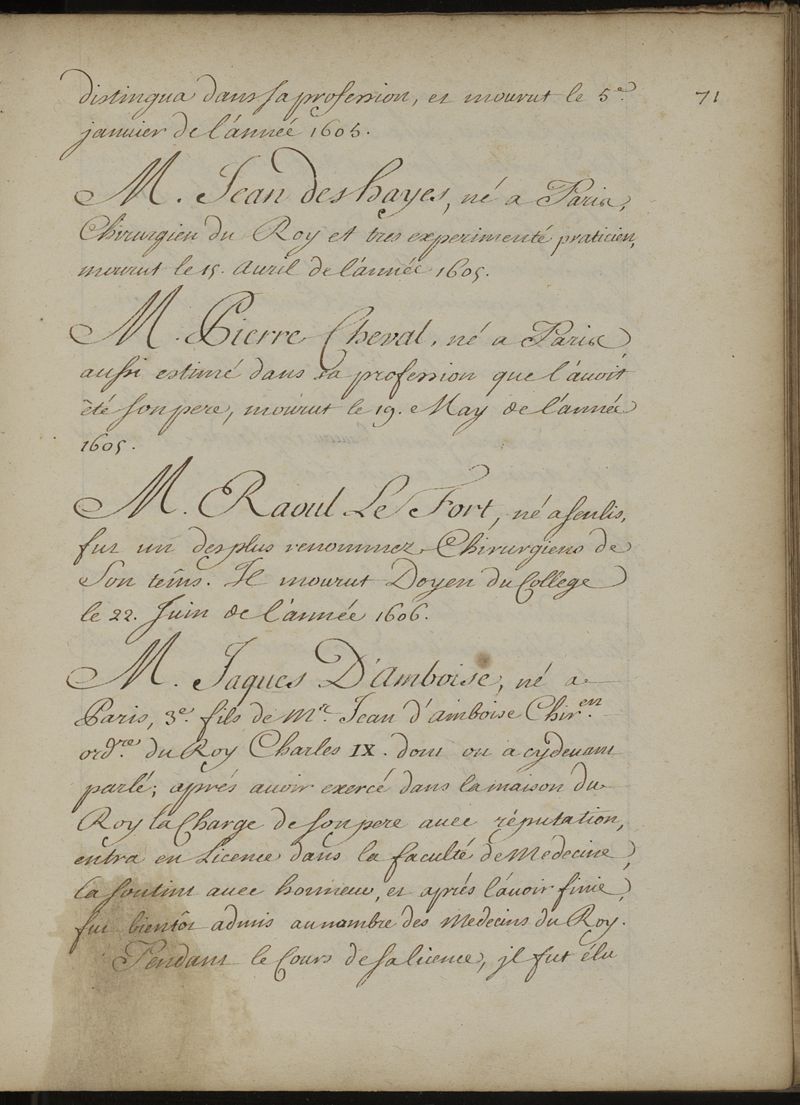 distingua dans sa profession, et mourut le 5.e
71
janvier de l'année 1605.
M. Jean deshayes, né a Paris,
Chirurgien du Roy et tres experimenté praticien,
mourut le 15. avril de l'année 1605.
M. Pierre Cheval, né a Paris
aussi estimé dans sa profession que l'avoit
été son pere, mourut le 19. May de l'année
1605.
M. Raoul Le Fort, né a senlis,
fut un des plus renommez Chirurgiens de
Son tems. Il mourut Doyen du College
le 22. Juin de l'année 1606.
M. Jaques D'Amboise, né a
Paris, 3.e fils de Mr. Jean d'amboise Chir.en
ord.re du Roy Charles IX. dont on a cydevant
parlé; aprés avoir exercé dans la maison du
Roy la Charge de son pere avec réputation,
entra en Licence dans la faculté de Medecine,
la soutint avec honneur, et aprés l'avoir finie,
fut bientôt admis au nombre des Medecins du Roy.
Pendant le Cours de sa licence, jl fut élu